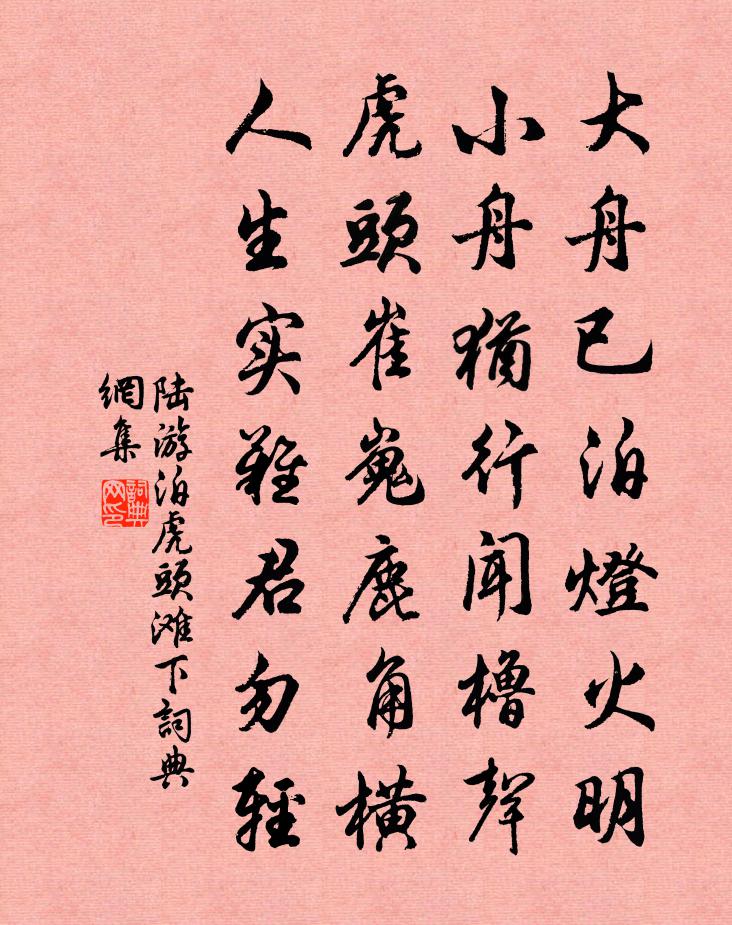 大舟已泊燈火明
小舟猶行聞櫓聲
虎頭崔嵬鹿角橫
人生实難君勿輕
陆游泊虎頭滩下詞典
網集
詞典
网印